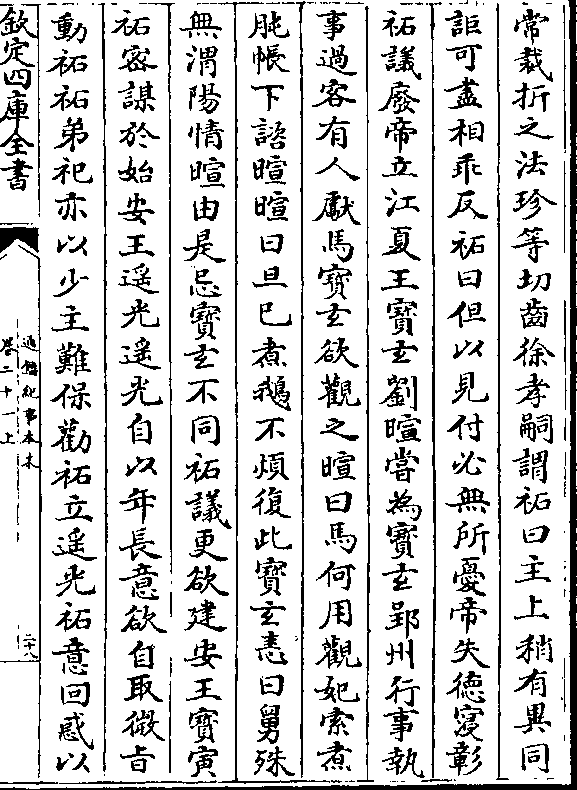 常裁折之法珍等切齒徐孝嗣謂祏曰主上稍有異同
詎可盡相乖反祏曰但以見付必無所憂帝失德寖彰
祏議廢帝立江夏王寶𤣥劉暄嘗為寶𤣥郢州行事執
事過客有人獻馬寶𤣥欲觀之暄曰馬何用觀妃索煮
肫帳下諮暄暄曰旦已煮鵝不煩復此寶𤣥恚曰舅殊
無渭陽情暄由是忌寶𤣥不同祏議更欲建安王寶寅
祏密謀於始安王遥光遥光自以年長意欲自取微旨
動祏祏弟祀亦以少主難保勸祏立遥光祏意回惑以
欽定四庫全書
通鑑紀事本末
卷二十一上
二十八